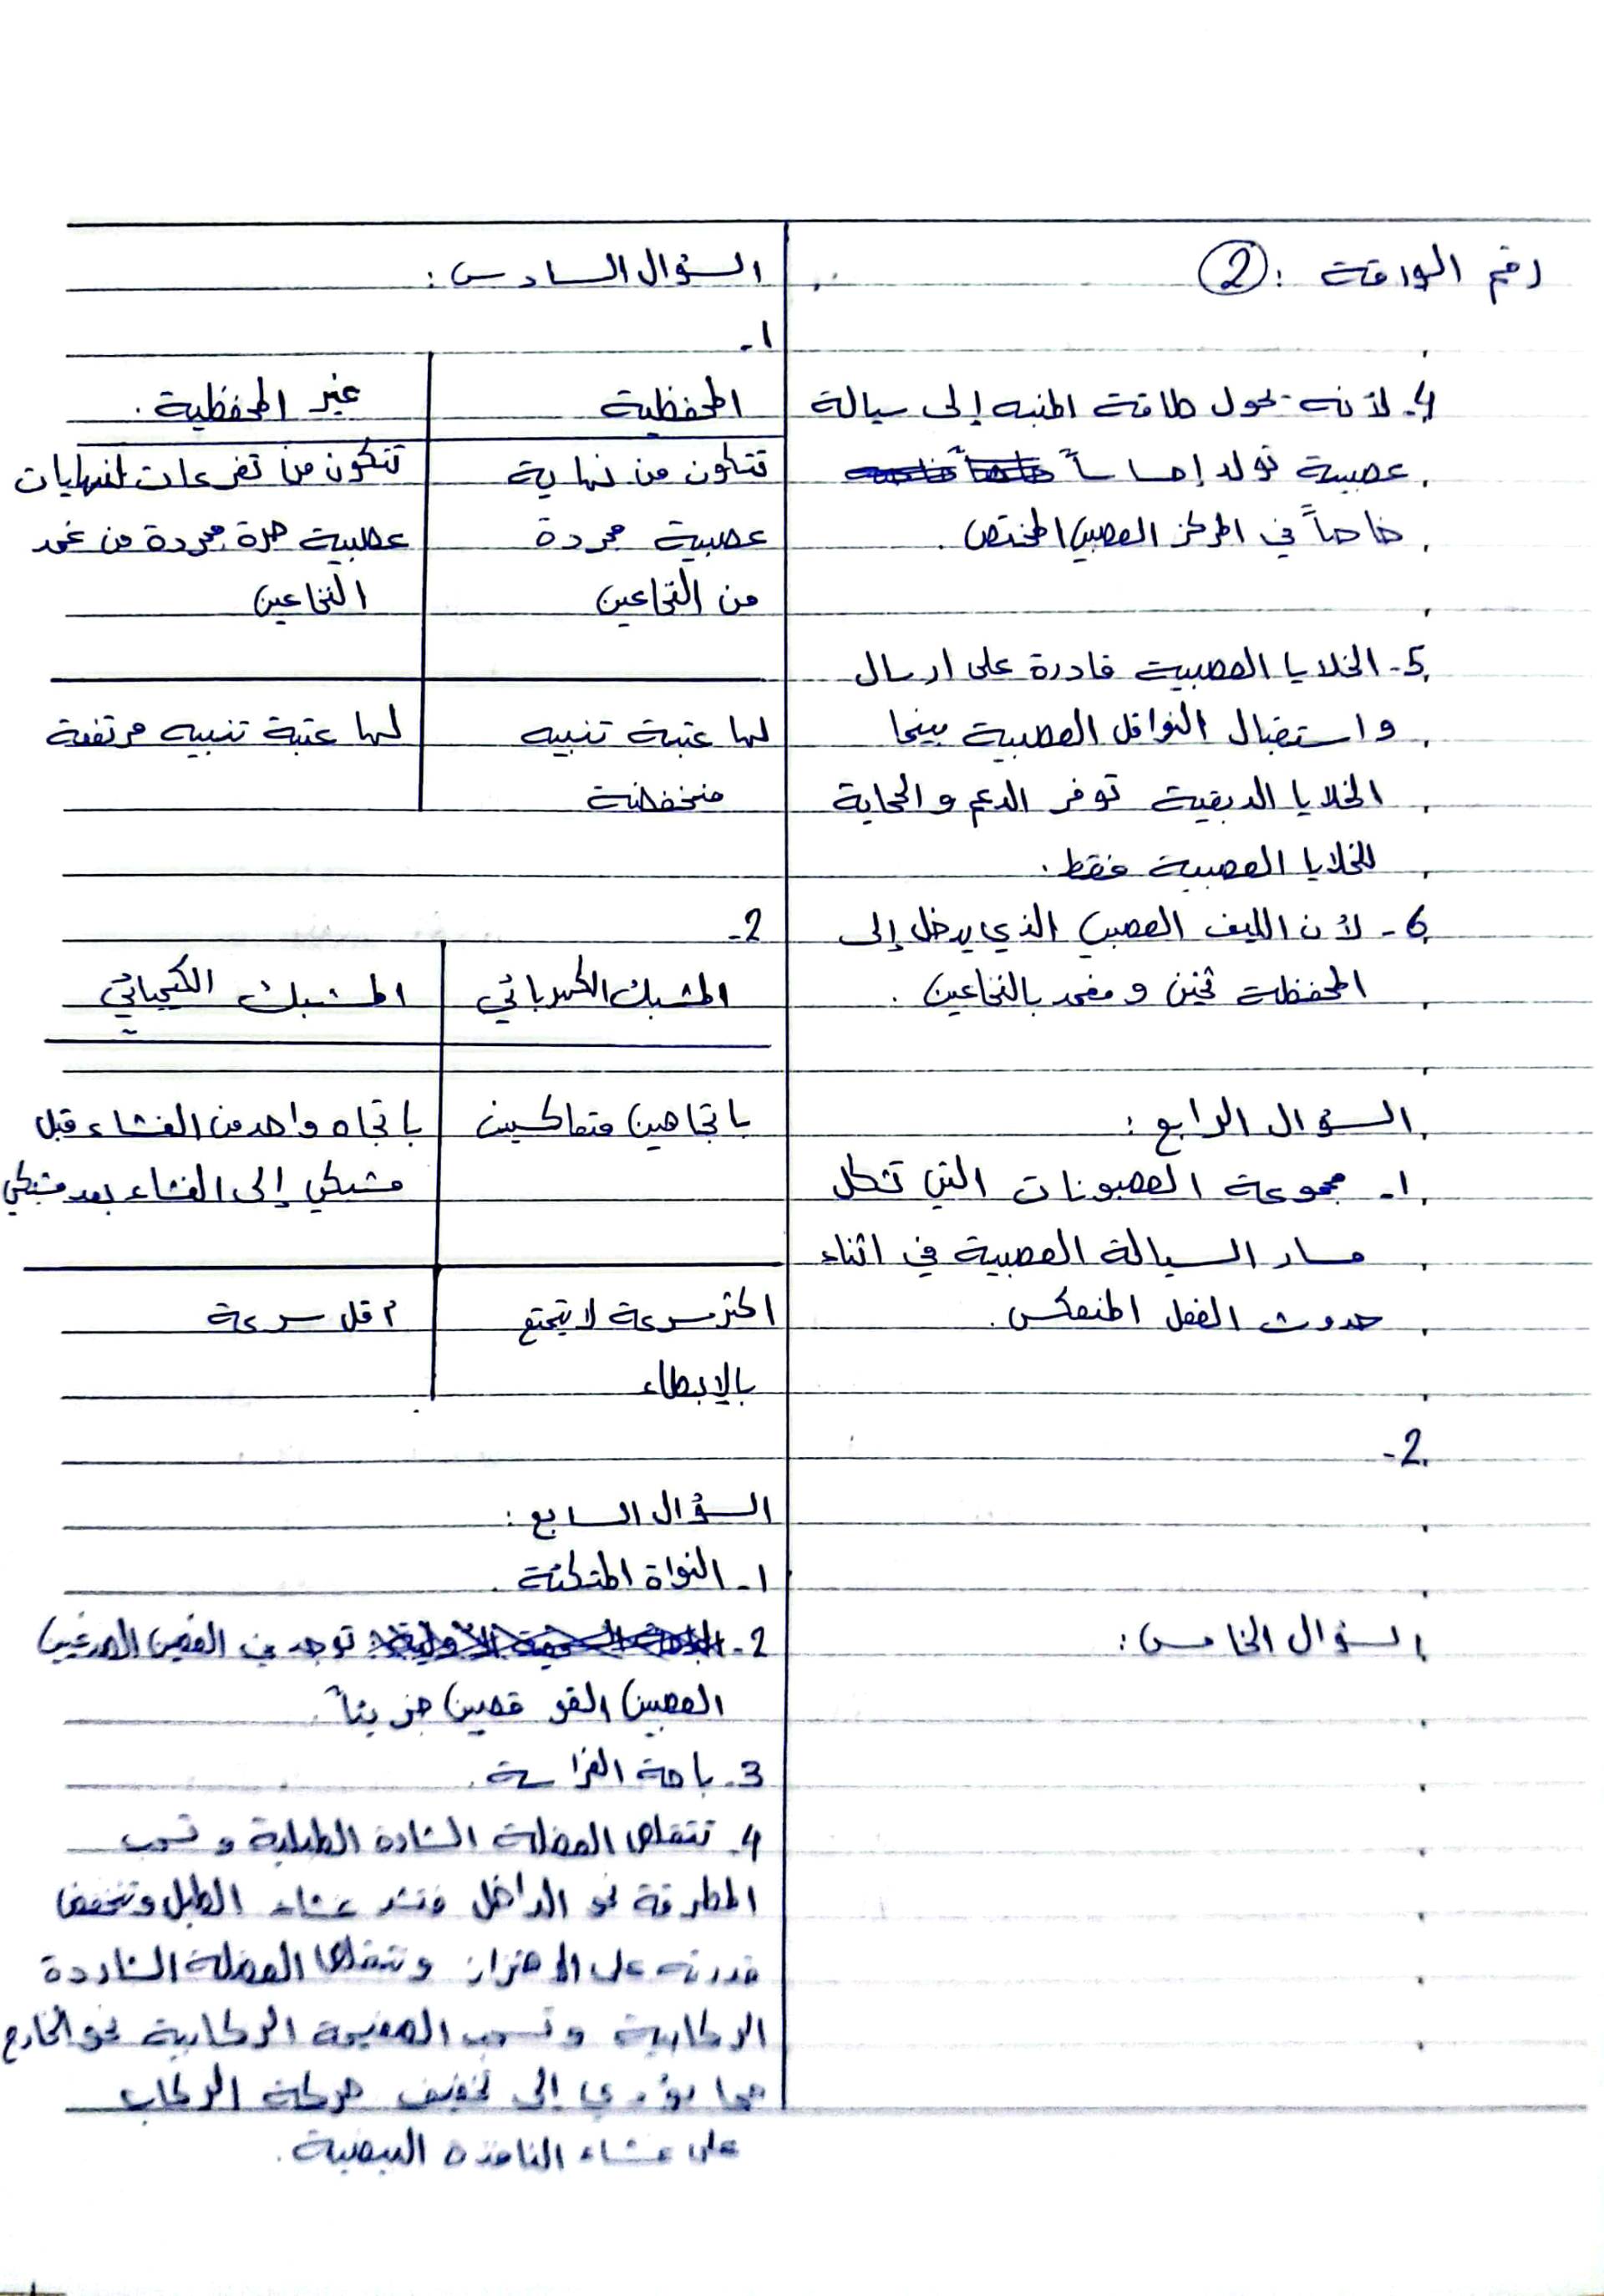 رقم الورقة : 2
4- لأنه يحول طاقة المنبه إلى سيالة
عصبية تولد إحساساً
خاصاً في المركز العصبي المختص .
5- الخلايا العصبية قادرة على ارسال
و استقبال النواقل العصبية بينما
الخلايا الدبقية توفر الدعم و الحماية
للخلايا العصبية فقط .
6- لأن الليف العصبي الذي يدخل إلى
المحفظة ثخين و مغمد بالنخاعين .
السؤال الرابع :
1- مجموعة العصبونات التي تشكل
مسار السيالة العصبية في اثناء
حدوث الفعل المنعكس .
2-
السؤال الخامس :
السؤال السادس :
1-
المحفظية | غير المحفظية .
تتكون من نهاية | تتكون من تفرعات لنهايات
عصبية مجردة | عصبية حرة مجردة من غمد
من النخاعين | النخاعين
لها عتبة تنبيه | لها عتبة تنبيه مرتفعة
منخفضة
2-
المشبك الكهربائي | المشبك الكيميائي
باتجاهين متعاكسين | باتجاه واحد من الغشاء قبل
مشبكي إلى الغشاء بعد مشبكي
اكثر سرعة لا يتمتع | اقل سرعة
بالإبطاء
السؤال السابع :
1- النواة المتكئة .
2- توجد في الفصين الصدغيين
العصبين القو قعيين جزئياً .
3- باحة الفراسة .
4- تتقلص العضلة الشادة الطبلية و تسحب
المطرقة نحو الداخل فتشد غشاء الطبل وتنخفض
قدرته على الاهتزاز و تتقلص العضلة الشادة
الركابية و تسحب الصفيحة الركابية نحو الخارج
مما يؤدي إلى تخفيف حركة الركاب
على غشاء النافذة البيضية .